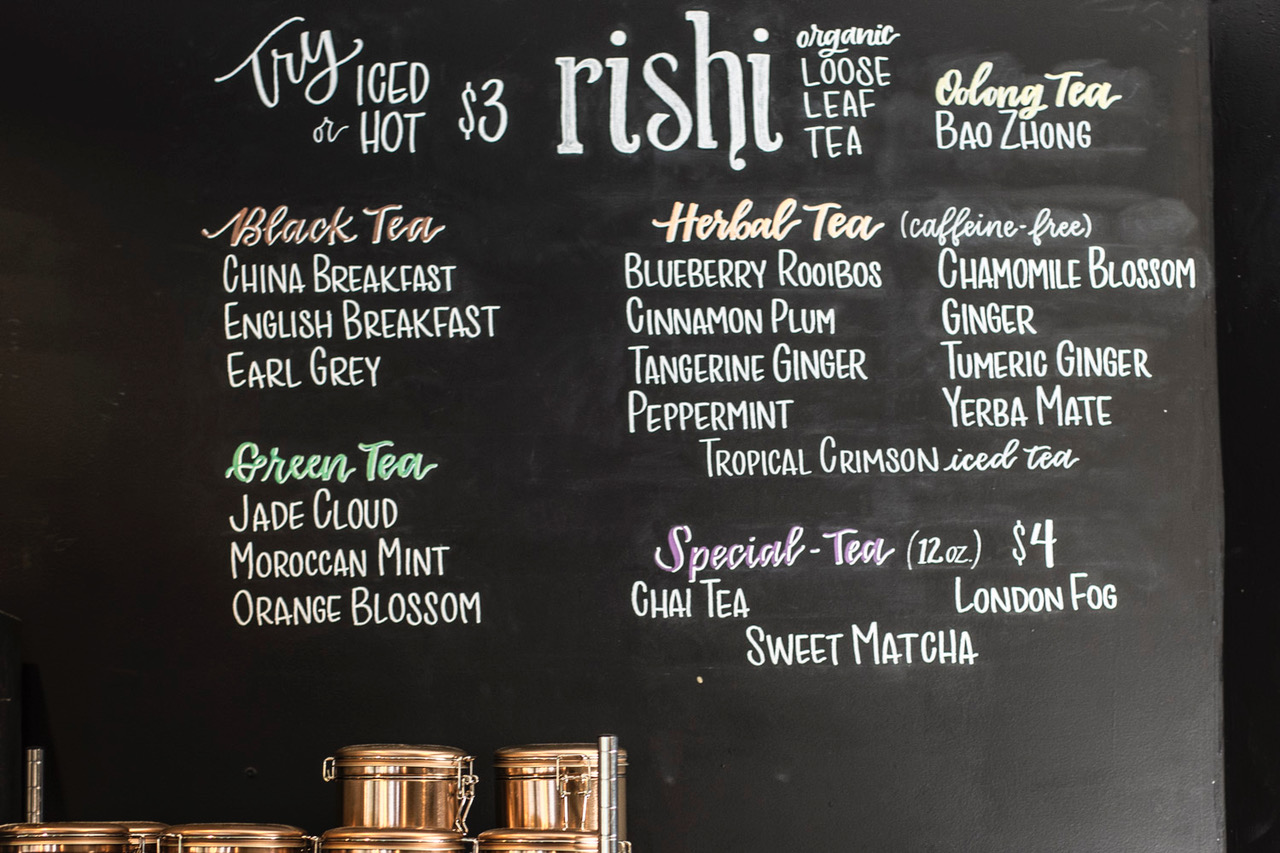 Try ICED or HOT $3
rishi
organic
LOOSE
LEAF
TEA
Oolong Tea
BAO ZHONG
Black Tea
CHINA BREAKFAST
ENGLISH BREAKFAST
EARL GREY
Green Tea
JADE CLOUD
MOROCCAN MINT
ORANGE BLOSSOM
Herbal Tea (caffeine-free)
BLUEBERRY ROOIBOS
CINNAMON PLUM
TANGERINE GINGER
PEPPERMINT
CHAMOMILE BLOSSOM
GINGER
TUMERIC GINGER
YERBA MATE
TROPICAL CRIMSON iced tea
Special-Tea (12 oz.) $4
CHAI TEA
LONDON FOG
SWEET MATCHA